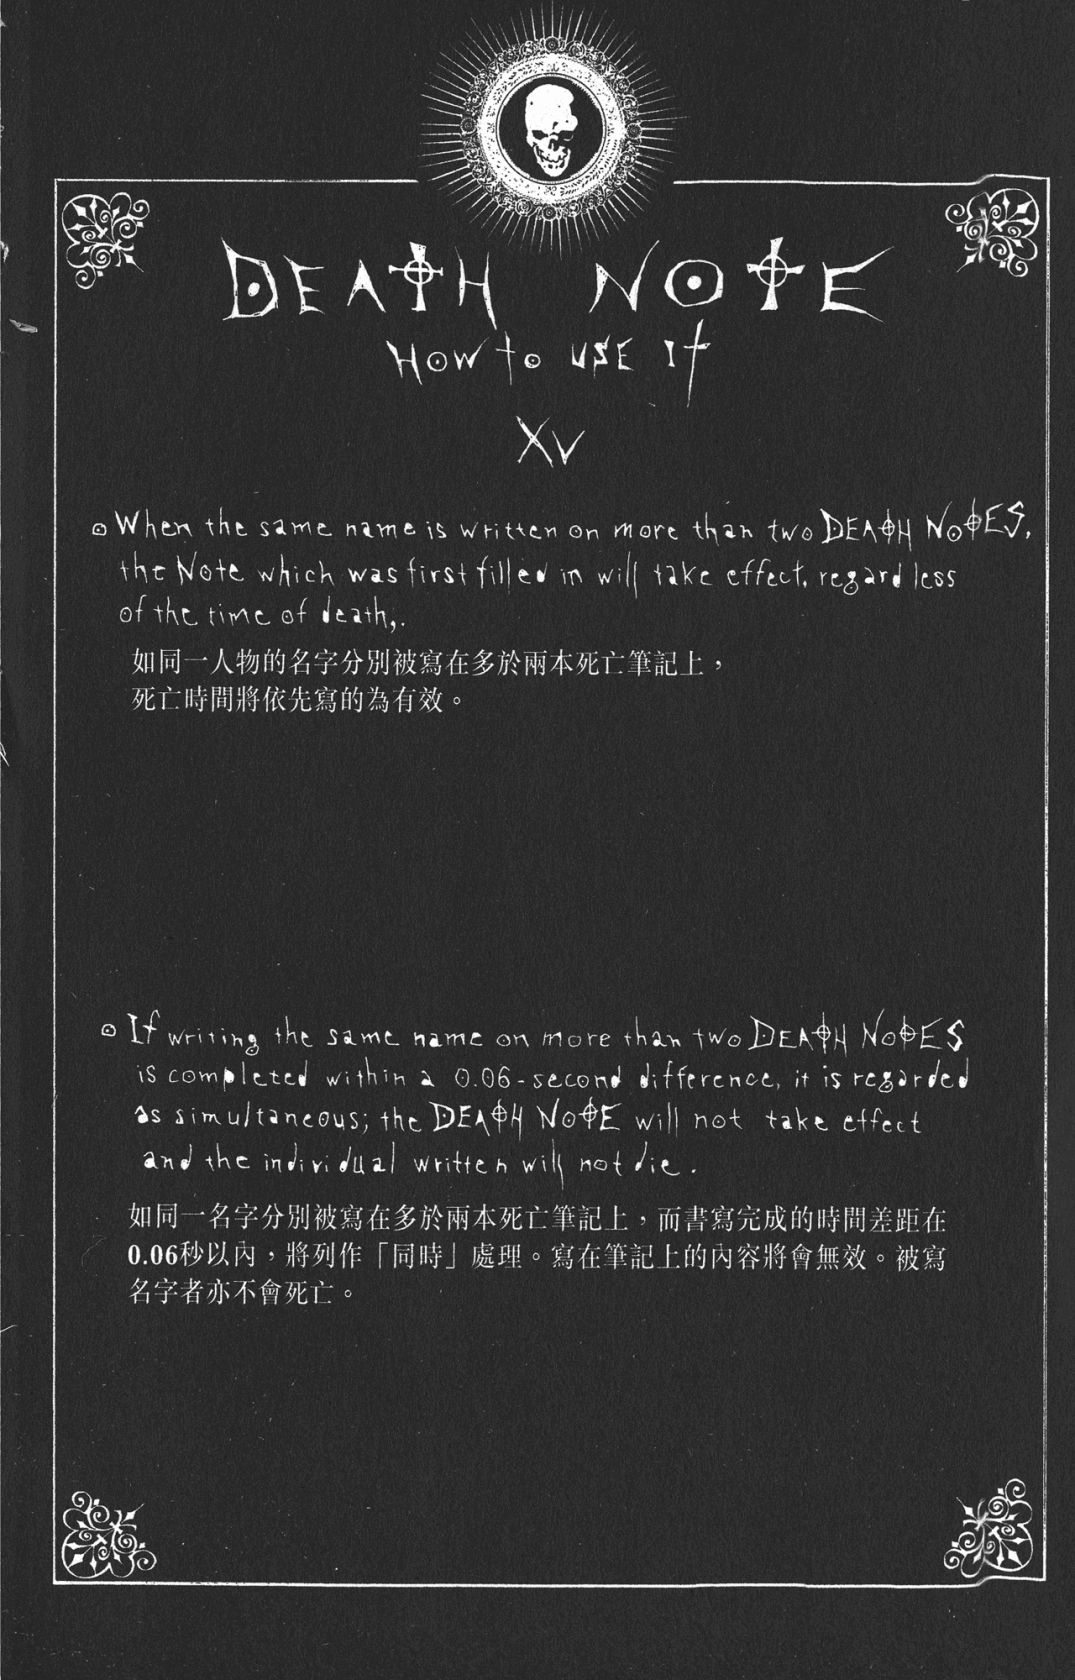 DEATH NOTE
HOW to USE It
XV
When the same name is written on more than two DEATH NOTES,
the Note which was first filled in will take effect, regard less
of the time of death,.
如同一人物的名字分別被寫在多於兩本死亡筆記上，
死亡時間將依先寫的為有效。
If writing the same name on more than two DEATH NOTES
is completed within a 0.06-second difference, it is regarded
as simultaneous; the DEATH NOTE will not take effect
and the individual written will not die.
如同一名字分別被寫在多於兩本死亡筆記上，而書寫完成的時間差距在
0.06秒以內，將列作「同時」處理。寫在筆記上的內容將會無效。被寫
名字者亦不會死亡。